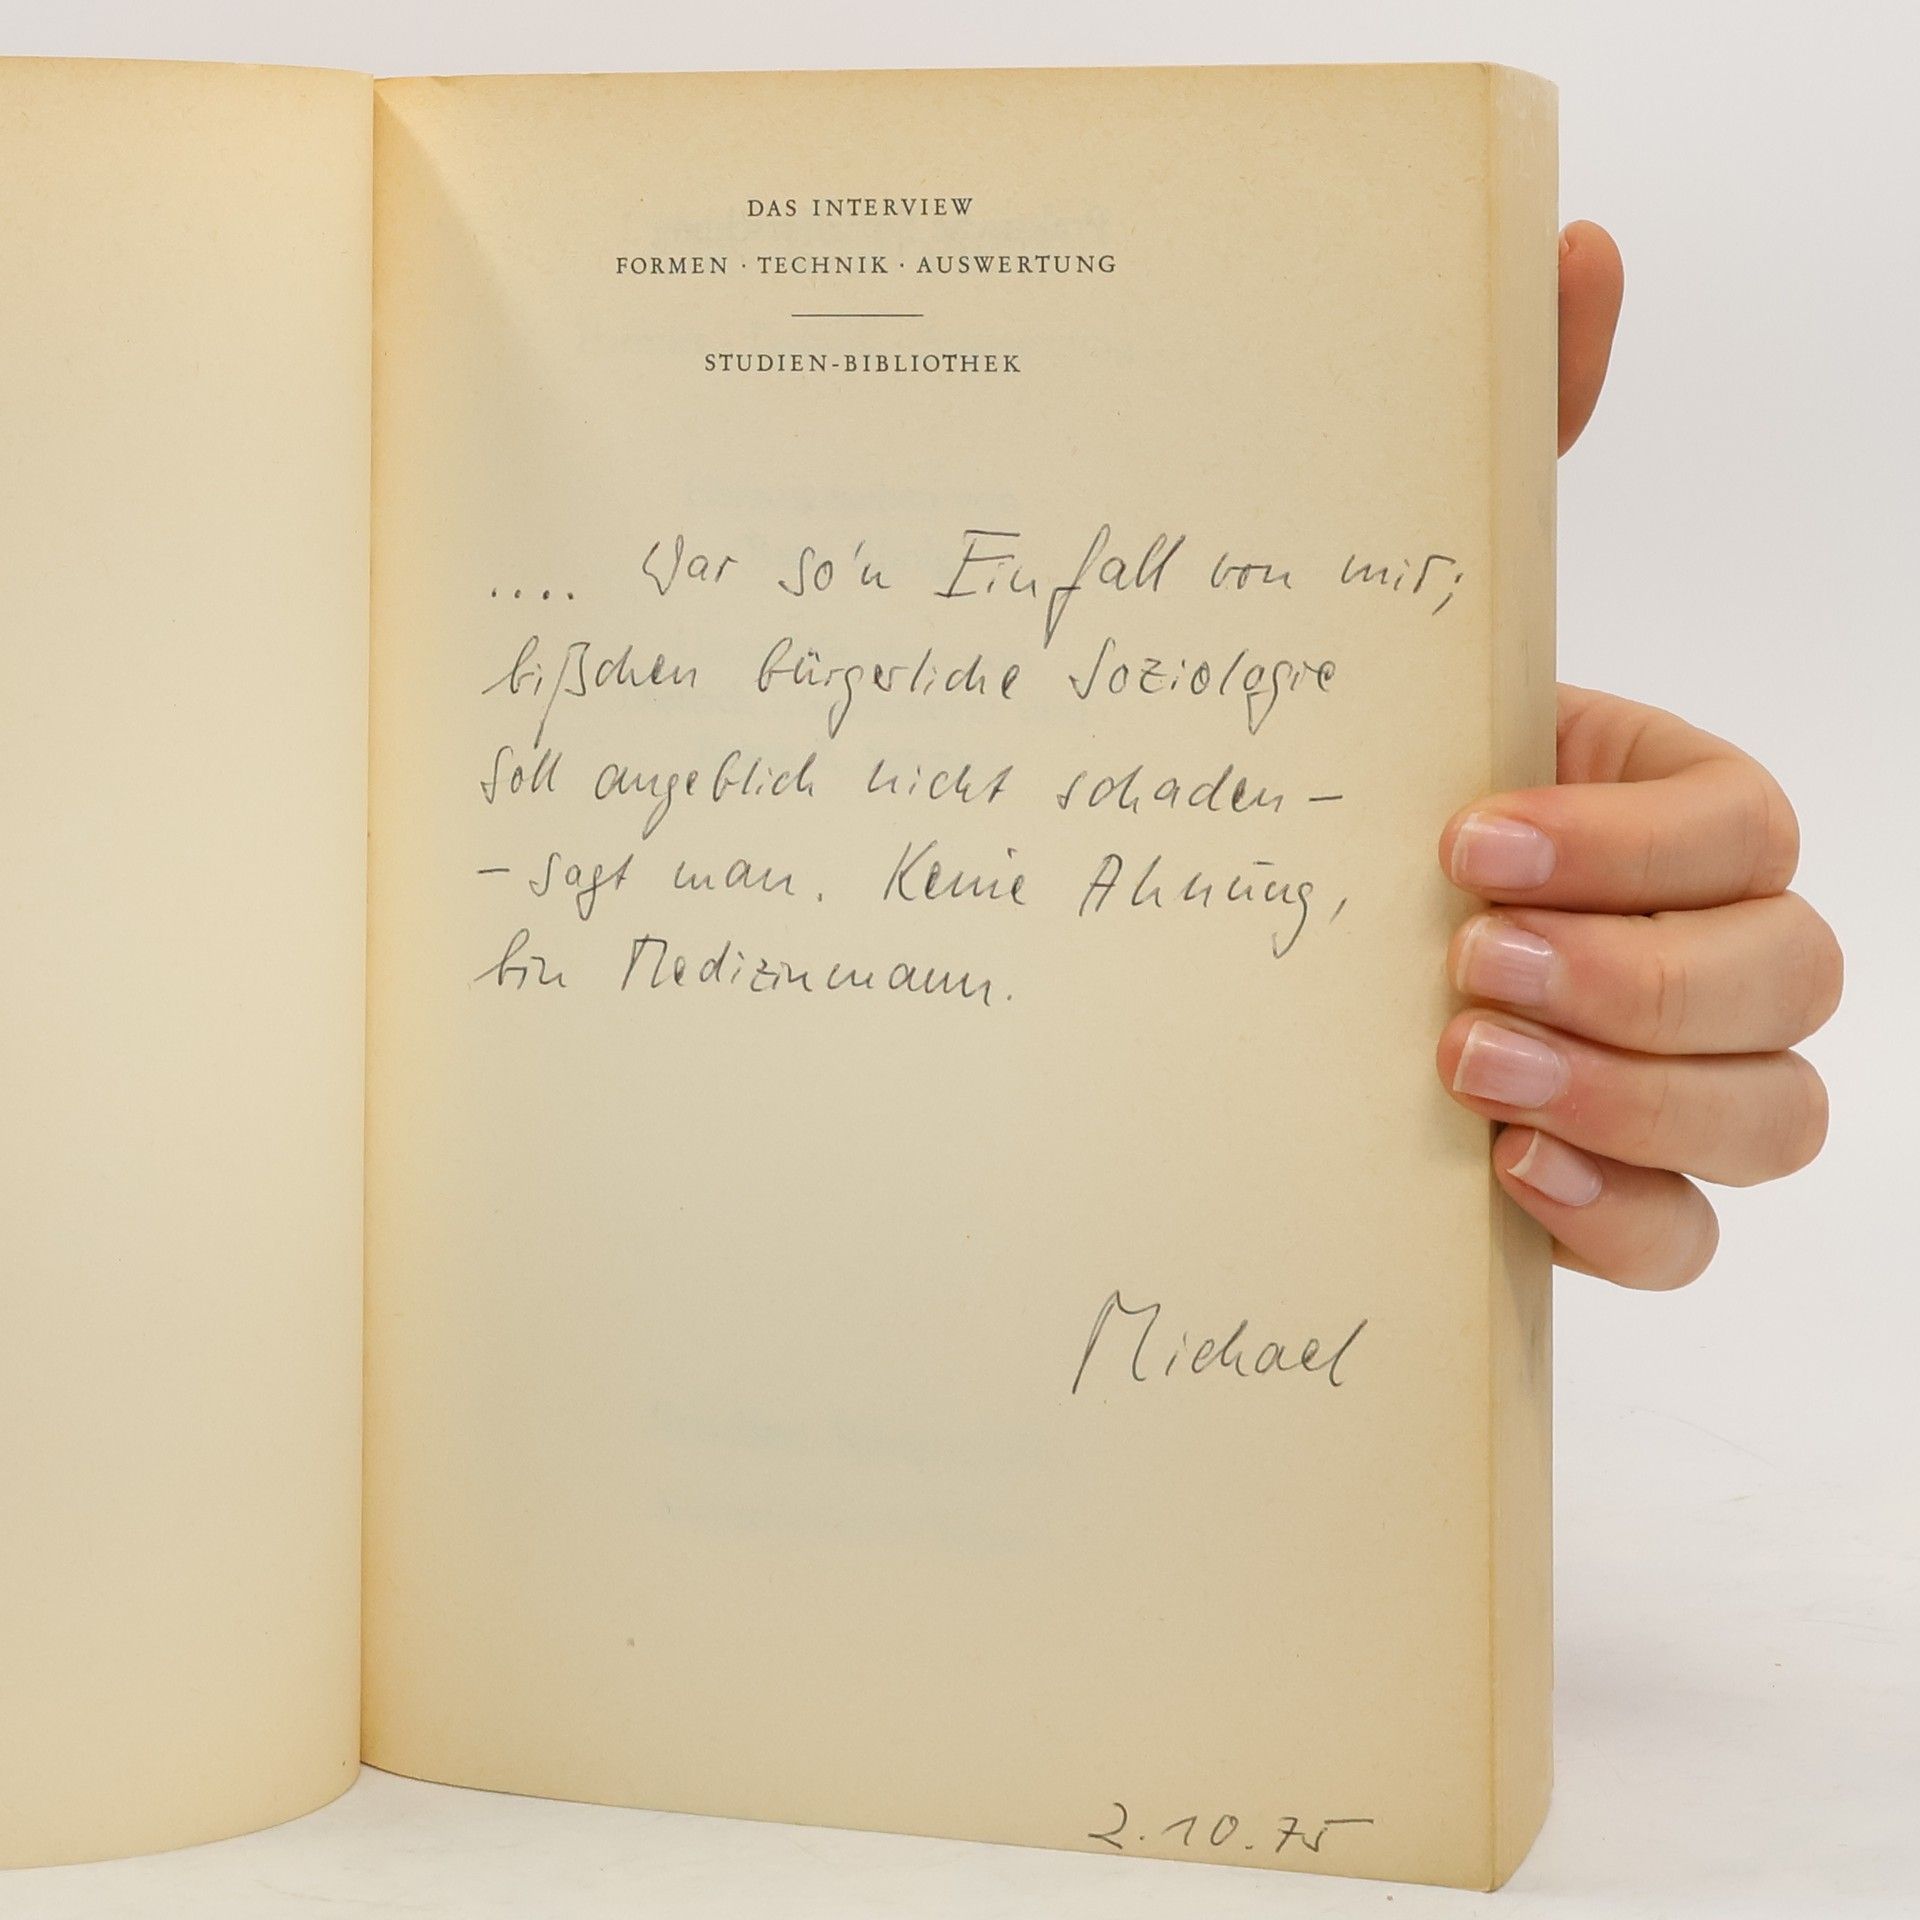 DAS INTERVIEW
FORMEN · TECHNIK · AUSWERTUNG
STUDIEN-BIBLIOTHEK
.... War so'n Einfall von mir;
bißchen bürgerliche Soziologie
soll angeblich nicht schaden –
– sagt man. Keine Ahnung,
bin Medizinmann.
Michael
2.10.75